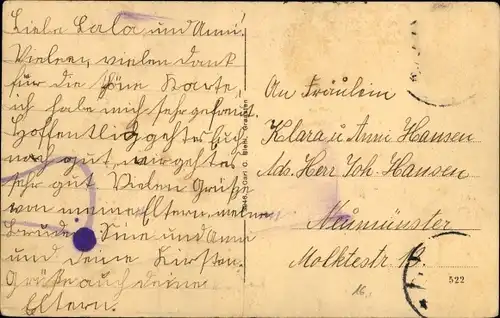 Liebe Lala und Anni!
Vielen, vielen dank
für die schöne Karte,
ich habe mich sehr gefreut.
Hoffentlich geht es Euch
noch gut, wir geht es
sehr gut. Vielen Grüße
von meine Eltern, meine
Bruder, Sine und Anne
und deine Kirsten.
Grüße auch deine
Eltern.
An Fräulein
Klara u. Anni Hansen
Ads. Herr Joh. Hansen
Neumünster
Molktestr. 18.
522